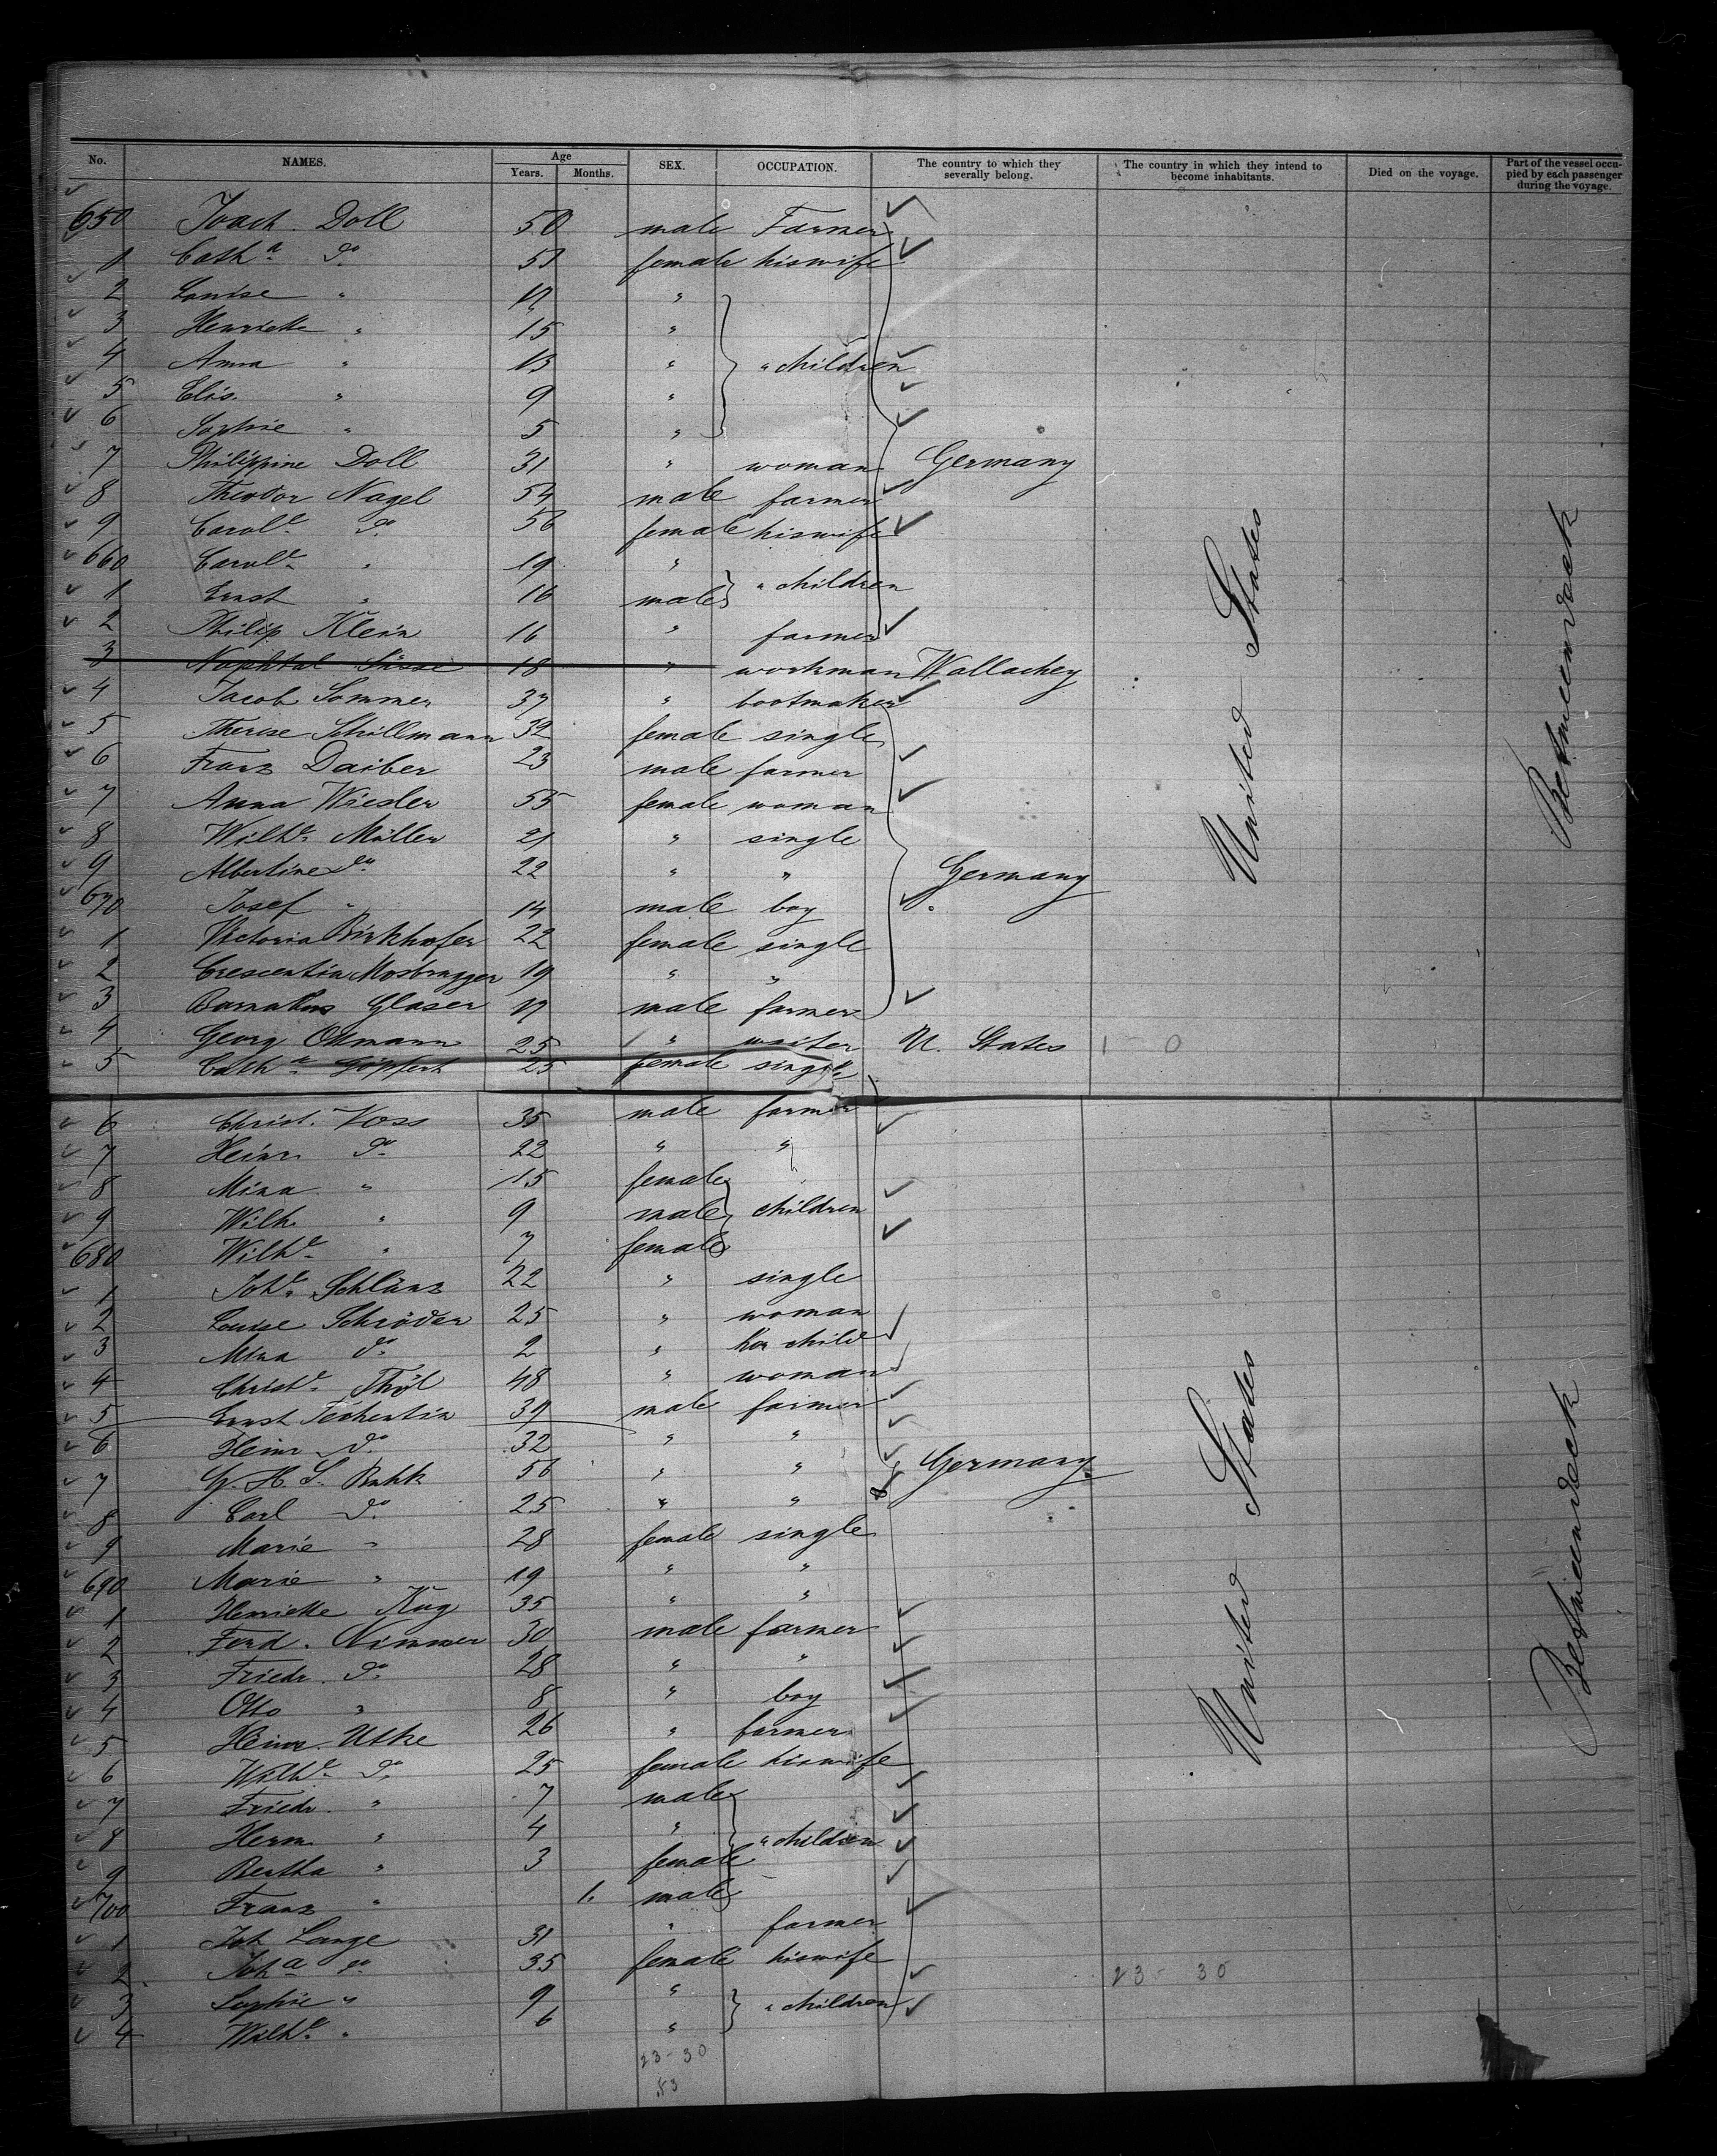 No. NAMES. Age Years. Months. SEX. OCCUPATION. The country to which they severally belong. The country in which they intend to become inhabitants. Died on the voyage. Part of the vessel occupied by each passenger during the voyage.
650 Joach. Doll 50 male Farmer
1 Cath.a do. female his wife
2 Louise " "
3 Henriette " 15 "
4 Anna " 13 " " children
5 Elis. " 9 "
6 Sophie " 5 "
7 Philippine Doll 31 " woman Germany
8 Theodor Nagel 54 male farmer
9 Carol.e do. 56 female his wife
660 Carol.e " 19 "
1 Ernst " 16 male " children
2 Philip Klein 16 " farmer
3 Naphtal 18 " workman Wallachey
4 Jacob Sommer 37 " bootmaker
5 Therese Schillmann 32 female single
6 Franz Daiber 23 male farmer
7 Anna Wiesler 55 female woman
8 Wilh.e Müller 21 " single
9 Albertine do. 22 " " Germany
670 Josef " 14 male boy
1 Victoria Birkhofer 22 female single
2 Crescentia Mosbrugger 19 " "
3 Barnabas Glaser male farmer
4 Georg Ottmann 25 " waiter U. States 1 - 0
5 Cath.a Göpfert 25 female single
United States
Betweendeck
6 Christ. Voss 35 male farmer
7 Heinr. do. 22 " "
8 Mina " 15 female
9 Wilh. " 9 male children
680 Wilh.e " 7 female
1 Joh.e Schlänz 22 " single
2 Louise Schröder 25 " woman
3 Mina do. 2 " her child
4 Christ.e Thöl 48 " woman
5 Ernst Techentin 39 male farmer
6 Heinr. do. 32 " "
7 G. H. S. 56 " " Germany
8 Carl do. 25 " "
9 Marie " 28 female single
690 Marie " 19 " "
1 Henriette Krüg 35 " "
2 Ferd. Nimmer 30 male farmer
3 Friedr. do. 28 " "
4 Otto " 8 " boy
5 Heinr. Utke 26 " farmer
6 Wilh.e do. 25 female his wife
7 Friedr. " 7 male
8 Herm. " 4 " " children
9 Bertha " 3 female
700 Franz " male
1 Joh. Lange 31 " farmer
2 Joh.a do. 35 female his wife 23 - 30
3 Sophie " 9 " " children
4 Wilh.e " 6 "
United States
Betweendeck
23 - 30
53